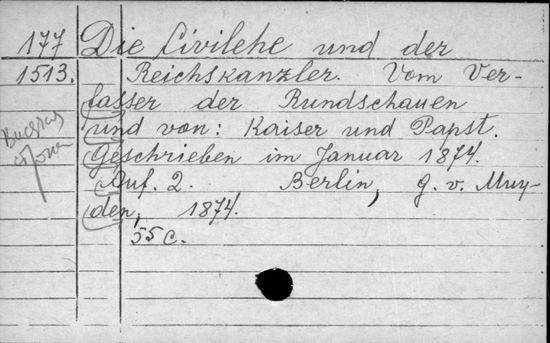 177 Die Civilehe und der
1513. Reichskanzler. Vom Ver-
fasser der Rundschauen
und von: Kaiser und Papst.
Geschrieben im Januar 1874.
Auf. 2. Berlin, G. v. Muy-
den, 1874.
55 c.